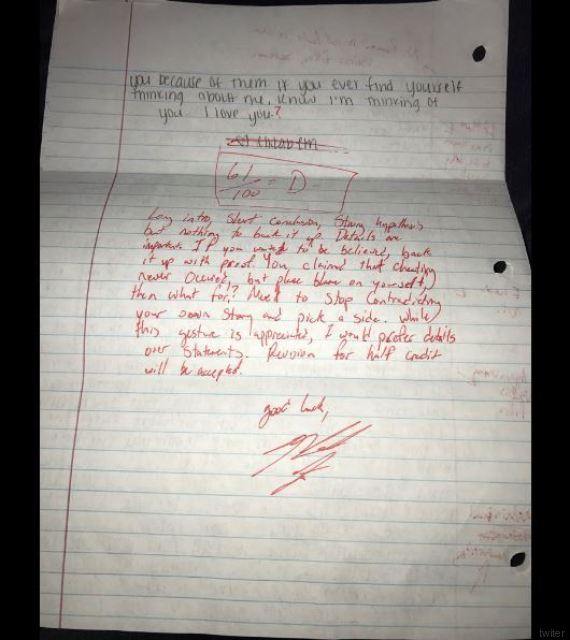 you because of them if you ever find yourself
thinking about me, know I'm thinking of
you I love you.?
61/100 = D-
Long intro, short conclusion, Strong hypothesis
but nothing to back it up. Details are
important. If you wanted to be believed, back
it up with proof. You claimed that cheating
never occured, but place blame on yourself,
then what for? Need to stop contradicting
your own story and pick a side. While
this gesture is appreciated, I would prefer details
over statements. Revision for half credit
will be accepted.
good luck,
twiter